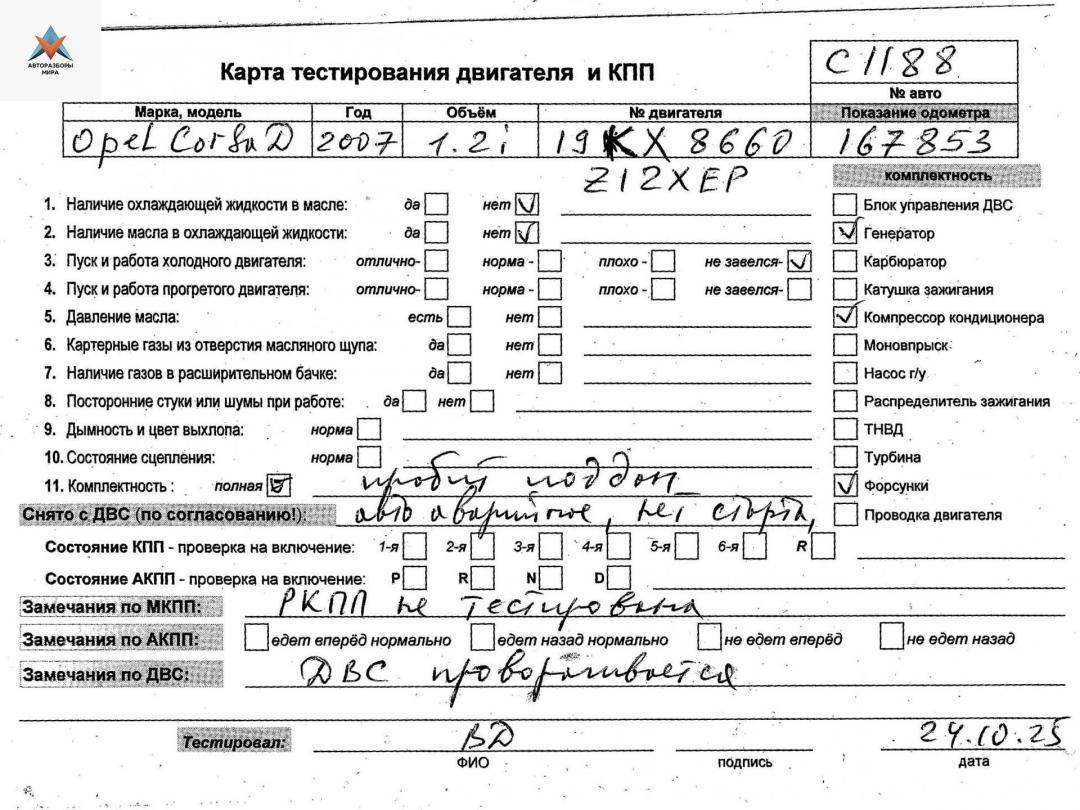 АВТОРАЗБОРЫ
МИРА
Карта тестирования двигателя и КПП
C1188
№ авто
Марка, модель Год Объём № двигателя Показание одометра
Opel Corsa D 2007 1.2i 19KX 8660 167853
Z12XEP
комплектность
1. Наличие охлаждающей жидкости в масле: да нет V Блок управления ДВС
2. Наличие масла в охлаждающей жидкости: да нет V V Генератор
3. Пуск и работа холодного двигателя: отлично- норма - плохо - не завелся- V Карбюратор
4. Пуск и работа прогретого двигателя: отлично- норма - плохо - не завелся- Катушка зажигания
5. Давление масла: есть нет V Компрессор кондиционера
6. Картерные газы из отверстия масляного щупа: да нет Моновпрыск
7. Наличие газов в расширительном бачке: да нет Насос г/у
8. Посторонние стуки или шумы при работе: да нет Распределитель зажигания
9. Дымность и цвет выхлопа: норма ТНВД
10. Состояние сцепления: норма Турбина
11. Комплектность : полная пробит поддон V Форсунки
Снято с ДВС (по согласованию!): авто аварийное, нет старта, Проводка двигателя
Состояние КПП - проверка на включение: 1-я 2-я 3-я 4-я 5-я 6-я R
Состояние АКПП - проверка на включение: P R N D
Замечания по МКПП: РКПП не тестирована
Замечания по АКПП: едет вперёд нормально едет назад нормально не едет вперёд не едет назад
Замечания по ДВС: ДВС проворачивается
Тестировал: ВД 24.10.25
ФИО подпись дата